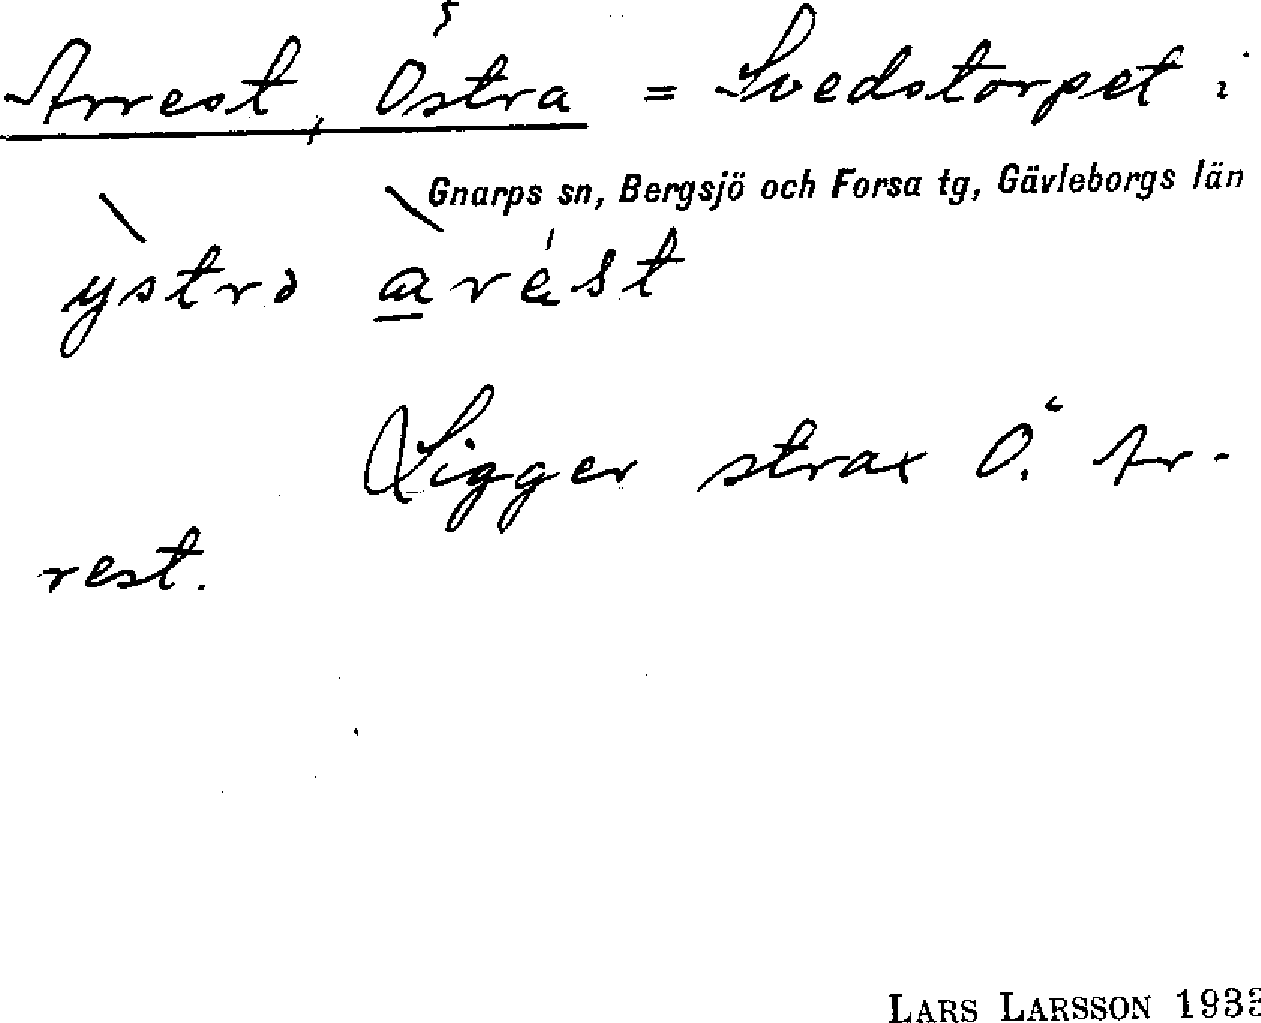 Arrest, Östra = Svedstorpet i
Gnarps sn, Bergsjö och Forsa tg, Gävleborgs län
ỳstrə àrést
Ligger strax Ö. Ar-
rest.
LARS LARSSON 1933